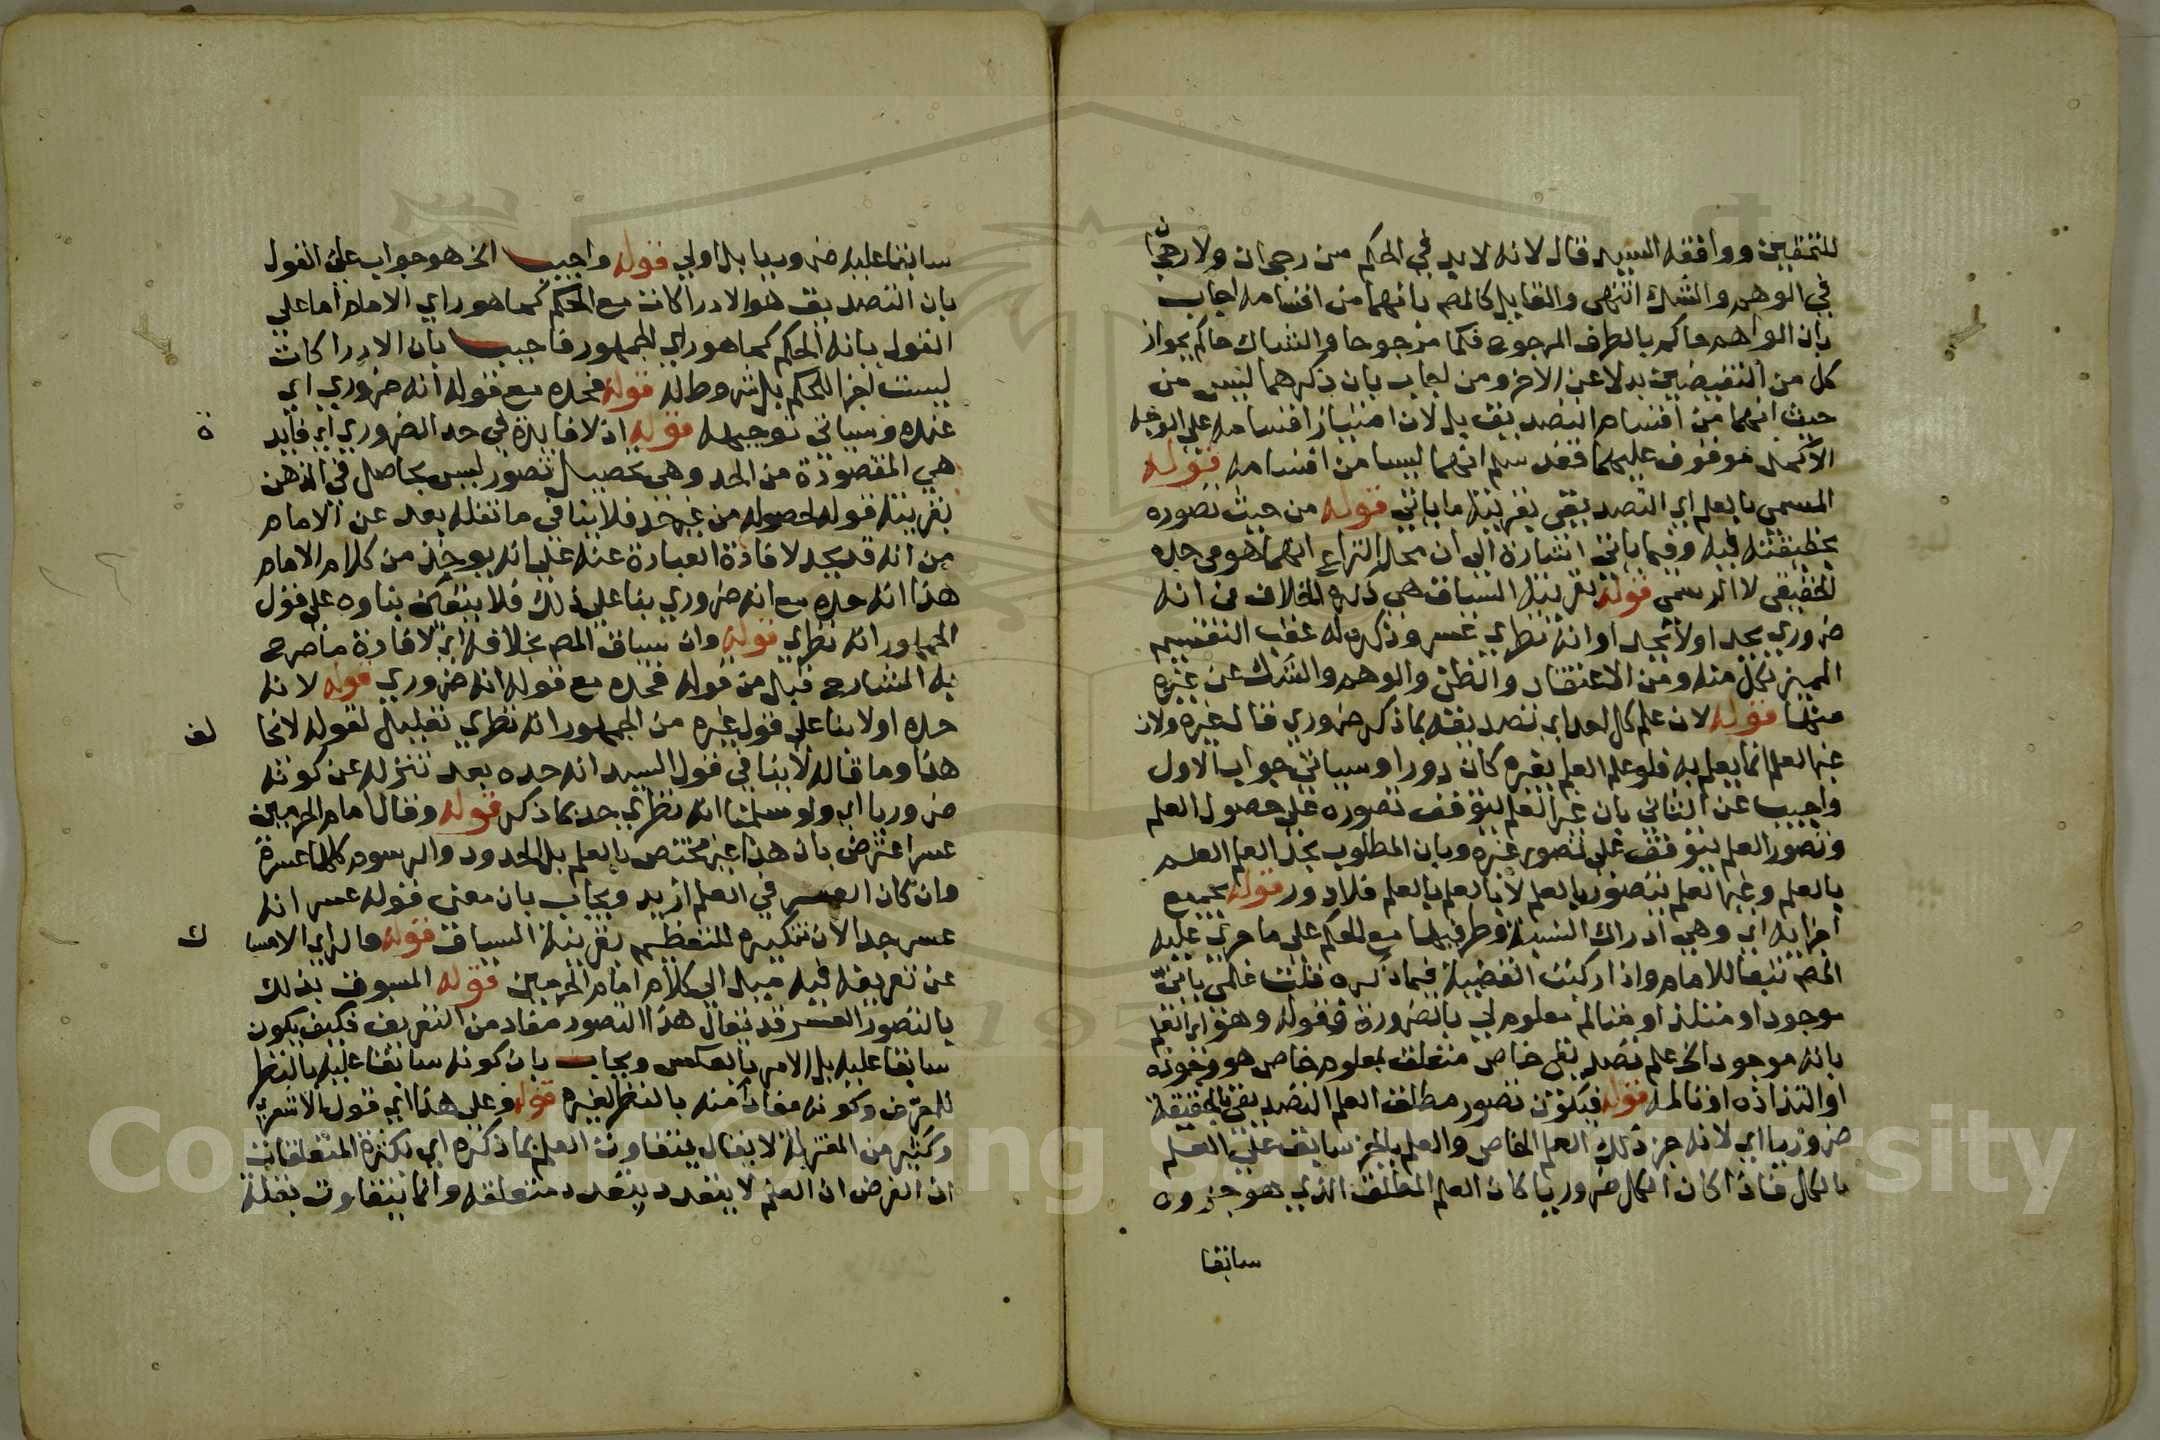 للمحققين ووافقه السيد قال لانه لا بد في الحكم من رجحان ولا رجحان
في الوهم والشك انتهى والقايل كالمص بانهما من اقسامه اجاب
بان الواهم حاكم بالطرف المرجوح حكما مرجوحا والشاك حاكم بجواز
كل من النقيضين بدلا عن الاخر ومن اجاب بان ذكرهما ليس من
حيث انهما من اقسام التصديق بل لان امتياز اقسامه على الوجه
الاكمل موقوف عليهما فقد سلم انهما ليسا من اقسامه قوله
المسمى بالعلم اي التصديقي بقرينة ما ياتي قوله من حيث تصوره
بحقيقته فيه وفيما ياتي اشارة الى ان محل النزاع انما هو في حده
الحقيقي لا الرسمي قوله بقرينة السياق هي ذكره الخلاف في انه
ضروري يحد او لا يحد او انه نظري عسر وذكره له عقب التقسيم
المميز لكل منه ومن الاعتقاد والظن والوهم والشك عن غيره
منها قوله لان علم كل احد اي تصديقه بما ذكر ضروري قال غيره ولان
غير العلم انما يعلم به فلو علم العلم بغيره كان دورا وسياتي جواب الاول
واجيب عن الثاني بان غير العلم يتوقف تصوره على حصول العلم
وتصور العلم يتوقف على تصور غيره وبان المطلوب بحد العلم العلم
بالعلم وغير العلم يتصور بالعلم لا بالعلم بالعلم فلا دور قوله بجميع
اجزائه اي وهي ادراك النسبة وطرفيها مع الحكم على ما جرى عليه
المص تبعا للامام واذا ركبت القضية فيما ذكره قلت علمي باني
موجود او متلذ او متالم معلوم لي بالضرورة فقوله وهو اي العلم
بانه موجود الخ علم تصديقي خاص متعلق بمعلوم خاص هو وجوده
او التذاذه او تالمه قوله فيكون تصور مطلق العلم التصديقي بالحقيقة
ضروريا اي لانه جزء ذلك العلم الخاص والعلم بالجزء سابق على العلم
بالكل فاذا كان الكل ضروريا كان العلم المطلق الذي هو جزوه
سابقا
سابقا عليه ضروريا بل اولى قوله واجيب الخ هو جواب على القول
بان التصديق هو الادراكات مع الحكم كما هو راي الامام اما على
القول بانه الحكم كما هو راي الجمهور فاجيب بان الادراكات
ليست اجزا للحكم بل شروط له قوله فحده مع قوله انه ضروري اي
عنده وسياتي توجيهه قوله اذ لا فايدة في حد الضروري اي فايد
ة
هي المقصودة من الحد وهي تحصيل تصور ليس بحاصل في الذهن
بقرينة قوله لحصوله من غير حد فلا ينافي ما نقله بعد عن الامام
من انه قد يحد لافادة العبارة عنه على انه يوخذ من كلام الامام
هذا انه حده مع انه ضروري بنا على ذلك فلا يتعين بناوه على قول
الجمهور انه نظري قوله وان سياق المص بخلافه اي لافادة ما صرح
به الشارح قبل من قوله فحده مع قوله انه ضروري قوله لانه
حده اولا بنا على قول غيره من الجمهور انه نظري تعليل لقوله لا يخا
لف
هذا وما قاله لا ينافي قول السيد انه حده بعد تنزله عن كونه
ضروريا اي ولو سلمنا انه نظري حد بما ذكر قوله وقال امام الحرمين
عسر اعترض بان هذا غير مختص بالعلم بل الحدود والرسوم كلها عسرة
وان كان العسر في العلم ازيد ويجاب بان معنى قوله عسر انه
عسر جدا لان تنكيره للتعظيم بقرينة السياق قوله مال اي الامسا
ك
عن تعريفه فيه ميل الى كلام امام الحرمين قوله المسبوق بذلك
بالتصور العسر قد يقال هذا التصور مفاد من التعريف فكيف يكون
سابقا عليه بل الامر بالعكس ويجاب بان كونه سابقا عليه بالنظر
للمعرف وكونه مفادا منه بالنظر لغيره قوله وعلى هذا اي قول الاشعري
وكثير من المعتزلة لا يقال يتفاوت العلم بما ذكره اي بكثرة المتعلقات
اذ الفرض ان العلم لا يتعدد بتعدد متعلقه وانما يتفاوت بقلة